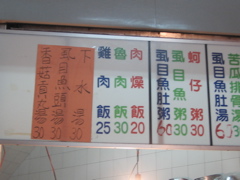 香菇貢丸湯30
虱目魚頭湯30
下水湯30
雞肉飯25
魯肉飯30
肉燥飯20
虱目魚肚粥60
虱目魚粥30
蚵仔粥30
虱目魚肚湯60
苦瓜排骨湯